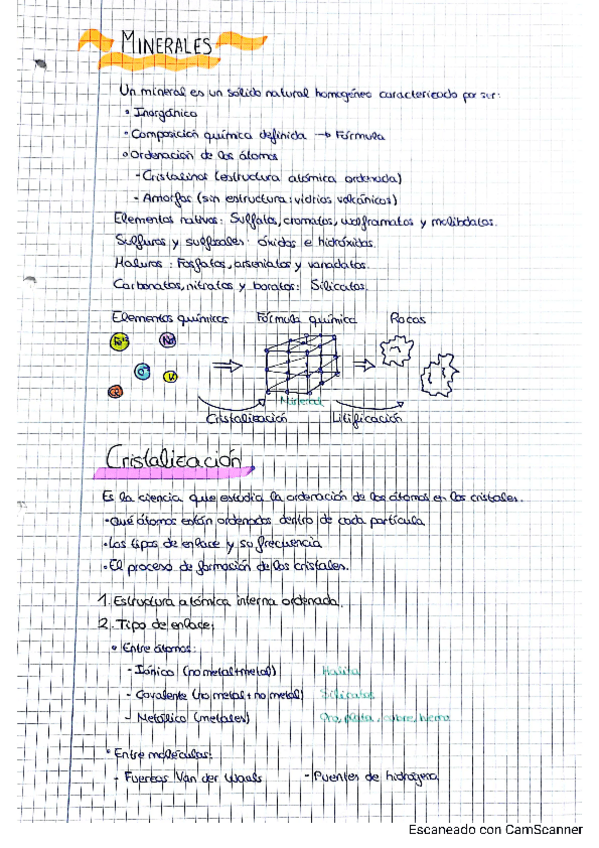 MINERALES
Un mineral es un sólido natural homogéneo caracterizado por ser:
• Inorgánico
• Composición química definida → Fórmula
• Ordenación de los átomos
- Cristalinos (estructura atómica ordenada)
- Amorfos (sin estructura: vidrios volcánicos)
Elementos nativos: Sulfatos, cromatos, wolframatos y molibdatos.
Sulfuros y sulfosales: óxidos e hidróxidos.
Haluros: Fosfatos, arseniatos y vanadatos.
Carbonatos, nitratos y boratos: Silicatos.
Elementos químicos Fórmula química Rocas
Mineral
Cristalización Litificación
Cristalización
Es la ciencia que estudia la ordenación de los átomos en los cristales.
• Qué átomos están ordenados dentro de cada partícula
• Los tipos de enlace y su frecuencia
• El proceso de formación de los cristales.
1. Estructura atómica interna ordenada.
2. Tipo de enlace:
• Entre átomos:
- Iónico (no metal+metal) Halita
- Covalente (no metal + no metal) Silicatos
- Metálico (metales) Oro, plata, cobre, hierro
• Entre moléculas:
- Fuerzas Van der Waals - Puentes de hidrógeno
Escaneado con CamScanner